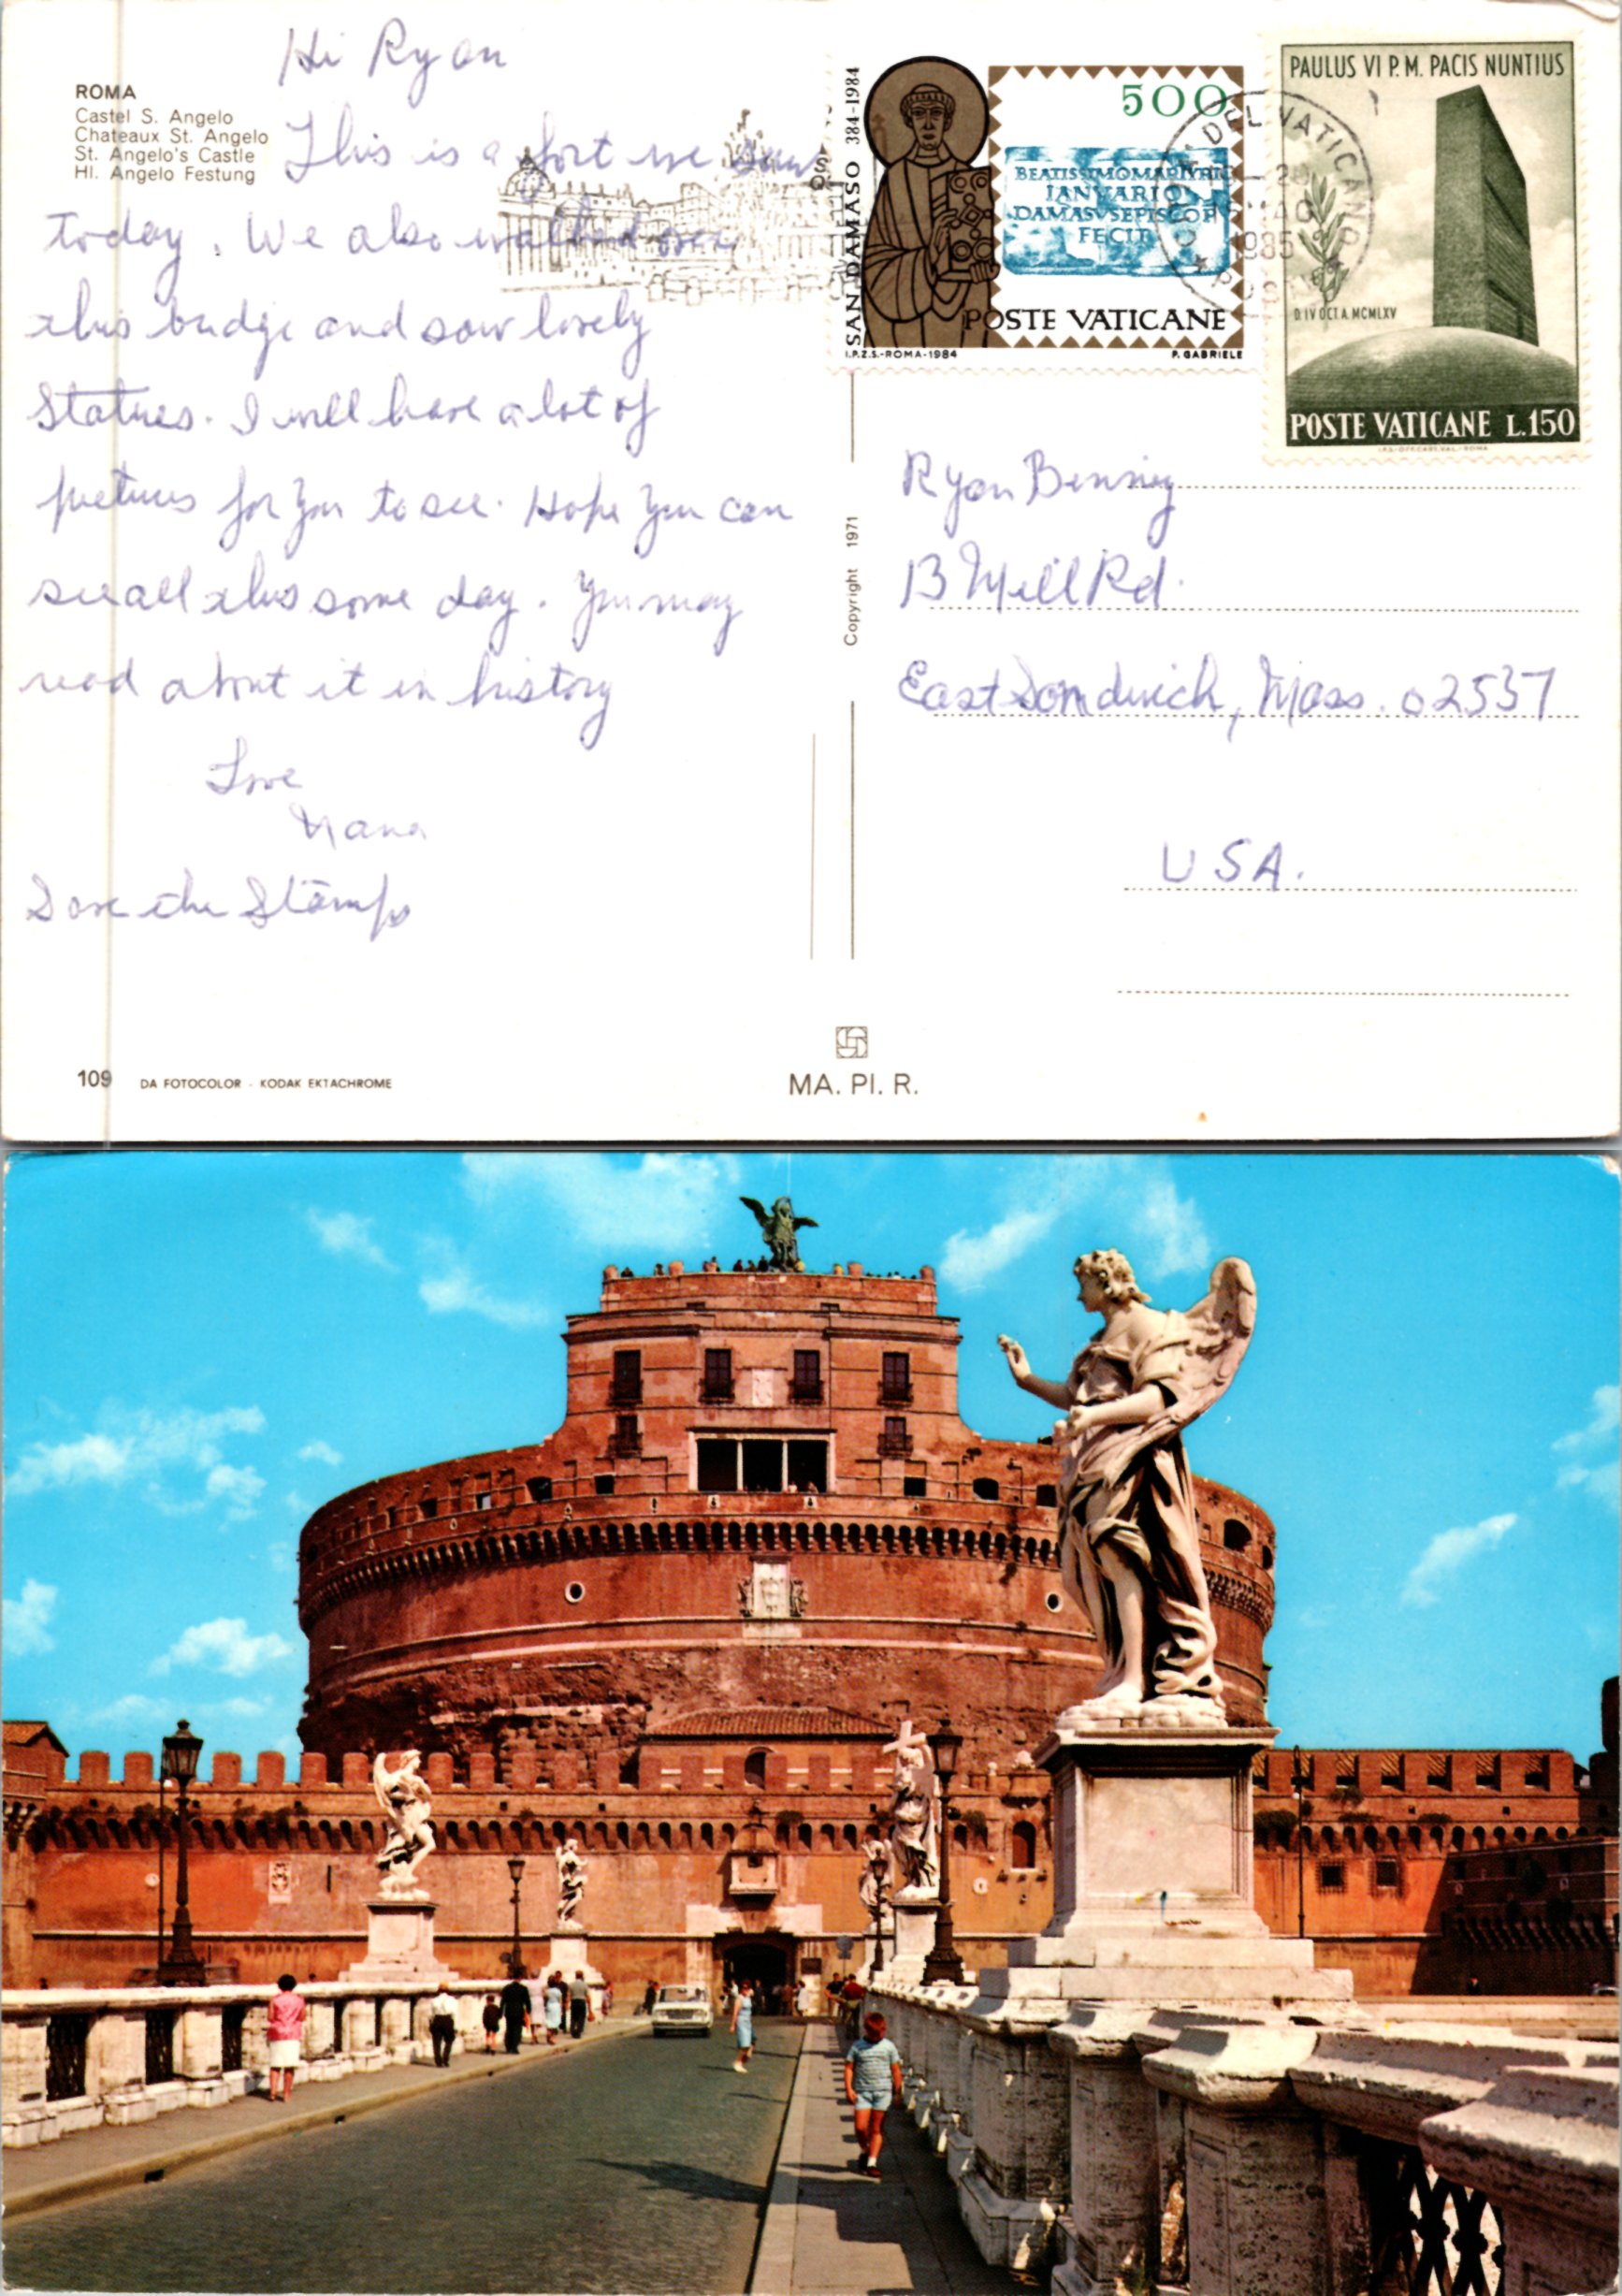 ROMA
Castel S. Angelo
Chateaux St. Angelo
St. Angelo's Castle
Hl. Angelo Festung
Hi Ryan
This is a fort we saw
today. We also walked over
this bridge and saw lovely
Statues. I will have a lot of
pictures for you to see. Hope you can
see all this some day. You may
read about it in history
Love
Nana
Save the Stamps
109 DA FOTOCOLOR - KODAK EKTACHROME
Copyright 1971
MA. PI. R.
SAN DAMASO 384-1984
500
BEATISSIMO MARTYRI
IANVARIO
DAMASVS EPISCOP
FECIT
POSTE VATICANE
I.P.Z.S.-ROMA-1984 P. GABRIELE
DEL VATICANO
1985
POSTE
PAULUS VI P.M. PACIS NUNTIUS
D. IV OCT. A. MCMLXV
POSTE VATICANE L.150
Ryan
13 Mill Rd.
East Sandwich, Mass. 02537
USA.